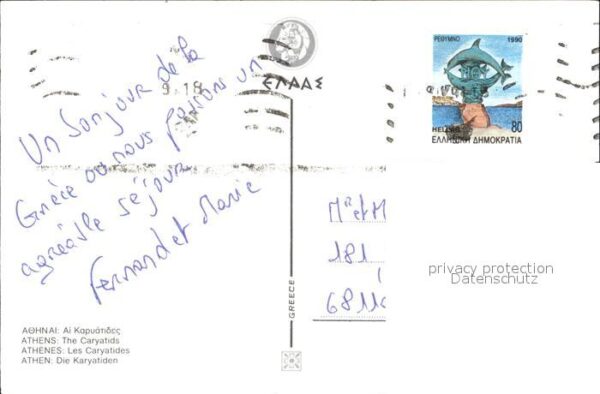 Un bonjour de la
Grèce où nous passons un
agréable séjour
Fernand et Marie
ΕΛΛΑΣ
9.18
ΡΕΘΥΜΝΟ 1990
HELLAS 80
ΕΛΛΗΝΙΚΗ ΔΗΜΟΚΡΑΤΙΑ
Mr et M
181
6811
privacy protection
Datenschutz
GREECE
ΑΘΗΝΑΙ: Αἱ Καρυάτιδες
ATHENS: The Caryatids
ATHENES: Les Caryatides
ATHEN: Die Karyatiden